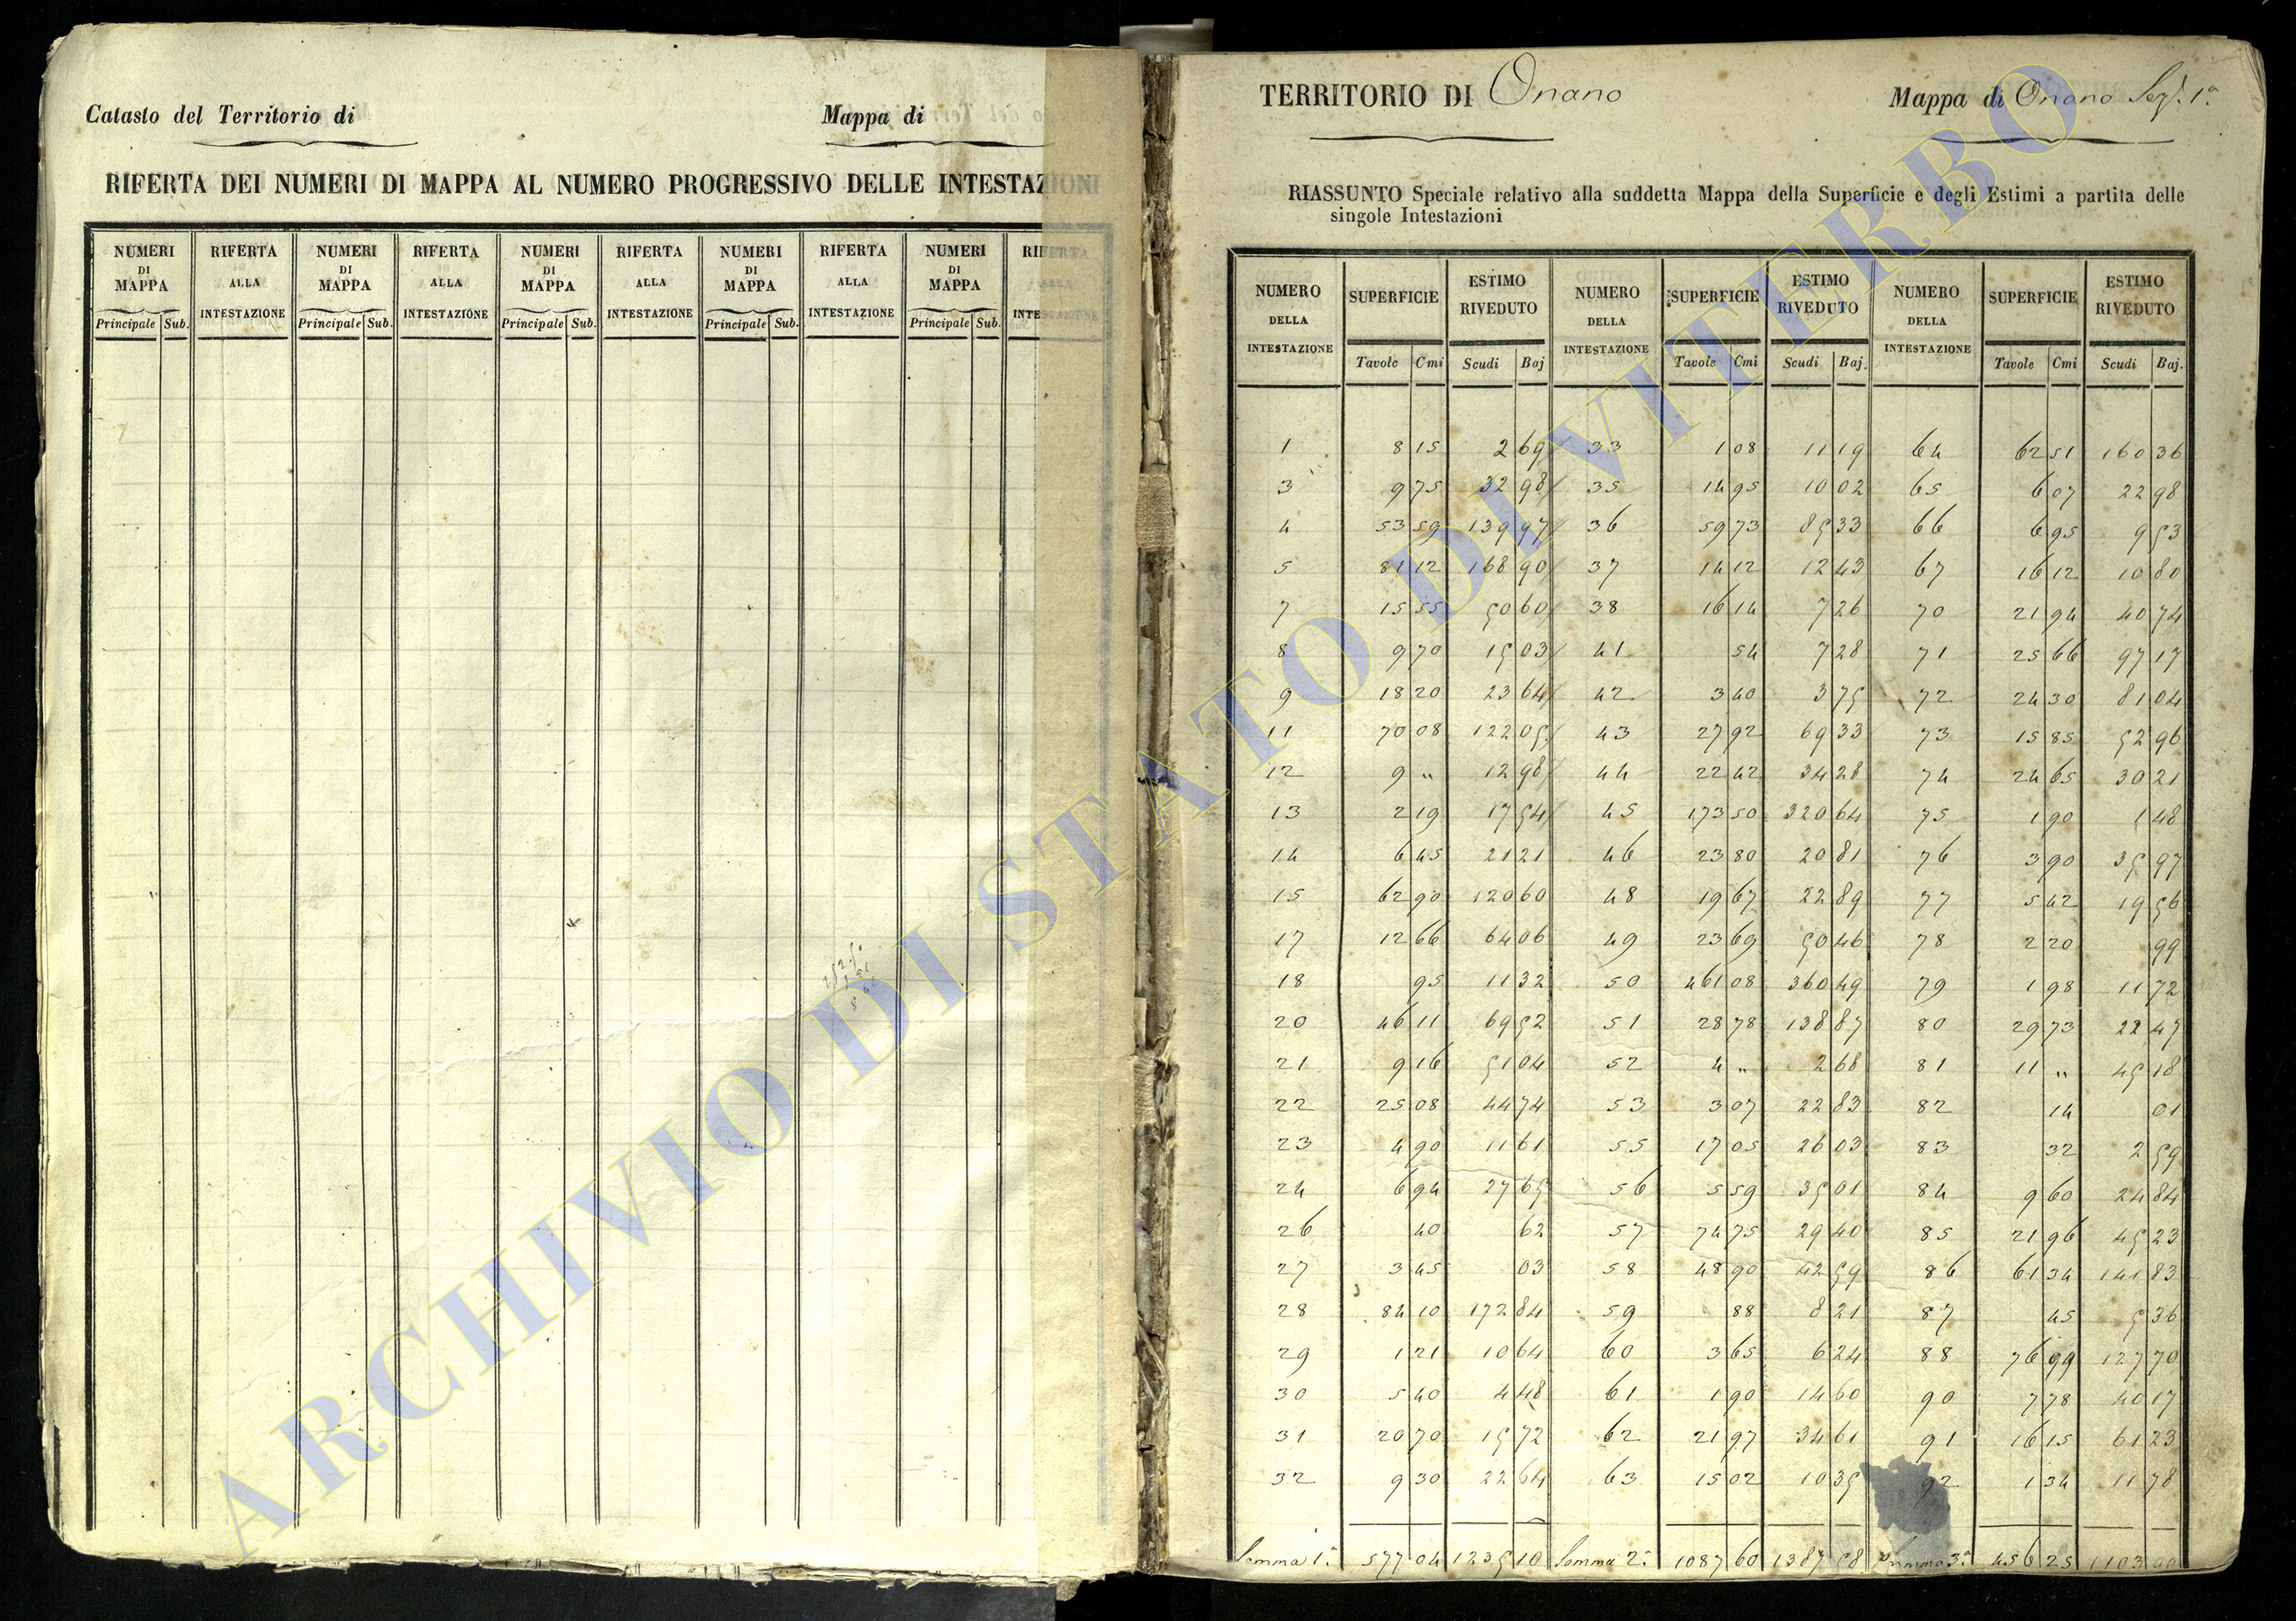 Catasto del Territorio di Mappa di
RIFERTA DEI NUMERI DI MAPPA AL NUMERO PROGRESSIVO DELLE INTESTAZIONI
NUMERI DI MAPPA RIFERTA ALLA INTESTAZIONE NUMERI DI MAPPA RIFERTA ALLA INTESTAZIONE NUMERI DI MAPPA RIFERTA ALLA INTESTAZIONE NUMERI DI MAPPA RIFERTA ALLA INTESTAZIONE NUMERI DI MAPPA RIFERTA ALLA INTESTAZIONE
Principale Sub. Principale Sub. Principale Sub. Principale Sub. Principale Sub.
TERRITORIO DI Onano Mappa di Onano Sez. 1ª
RIASSUNTO Speciale relativo alla suddetta Mappa della Superficie e degli Estimi a partita delle
singole Intestazioni
NUMERO DELLA INTESTAZIONE SUPERFICIE ESTIMO RIVEDUTO NUMERO DELLA INTESTAZIONE SUPERFICIE ESTIMO RIVEDUTO NUMERO DELLA INTESTAZIONE SUPERFICIE ESTIMO RIVEDUTO
Tavole Cmi Scudi Baj Tavole Cmi Scudi Baj. Tavole Cmi Scudi Baj.
1 8 15 2 69 33 1 08 11 19 64 62 51 160 36
3 9 75 32 98 35 14 95 10 02 65 6 07 22 98
4 53 59 139 97 36 59 73 85 33 66 6 95 9 53
5 81 12 168 90 37 14 12 12 43 67 16 12 10 80
7 15 55 50 60 38 16 14 7 26 70 21 94 40 74
8 9 70 15 03 41 54 7 28 71 25 66 97 17
9 18 20 23 64 42 3 40 3 75 72 24 30 81 04
11 70 08 122 05 43 27 92 69 33 73 15 85 52 96
12 9 " 12 98 44 22 42 34 28 74 24 65 30 21
13 2 19 17 54 45 173 50 320 64 75 1 90 1 48
14 6 45 21 21 46 23 80 20 81 76 3 90 35 97
15 62 90 120 60 48 19 67 22 89 77 5 42 19 56
17 12 66 64 06 49 23 69 50 46 78 2 20 99
18 95 11 32 50 461 08 360 49 79 1 98 11 72
20 46 11 69 52 51 28 78 138 87 80 29 73 22 47
21 9 16 51 04 52 4 " 2 68 81 11 " 45 18
22 25 08 44 74 53 3 07 22 83 82 14 01
23 4 90 11 61 55 17 05 26 03 83 32 2 59
24 6 94 27 65 56 5 59 35 01 84 9 60 24 84
26 40 62 57 74 75 29 40 85 21 96 45 23
27 3 45 03 58 48 90 42 59 86 61 34 141 83
28 84 10 172 84 59 88 8 21 87 45 5 36
29 1 21 10 64 60 3 65 6 24 88 76 99 127 70
30 5 40 4 48 61 1 90 14 60 90 7 78 40 17
31 20 70 15 72 62 21 97 34 61 91 16 15 61 23
32 9 30 22 64 63 15 02 10 35 92 1 34 11 78
Somma 1ª 577 04 1235 10 Somma 2ª 1087 60 1387 58 Somma 3ª 456 25 1103
ARCHIVIO DI STATO DI VITERBO